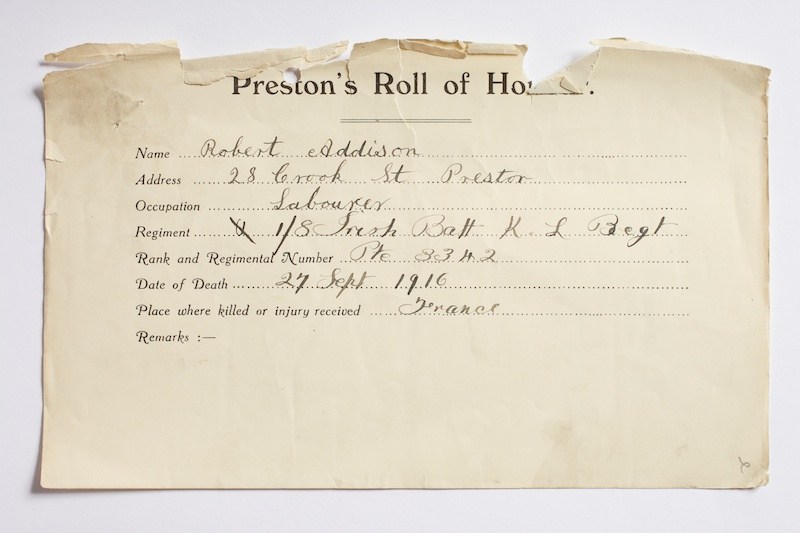 Preston's Roll of Ho r.
Name Robert Addison
Address 28 Crook St Preston
Occupation Labourer
Regiment 1/8 Irish Batt K. L Regt
Rank and Regimental Number Pte 3342
Date of Death 27 Sept 1916
Place where killed or injury received France
Remarks :—